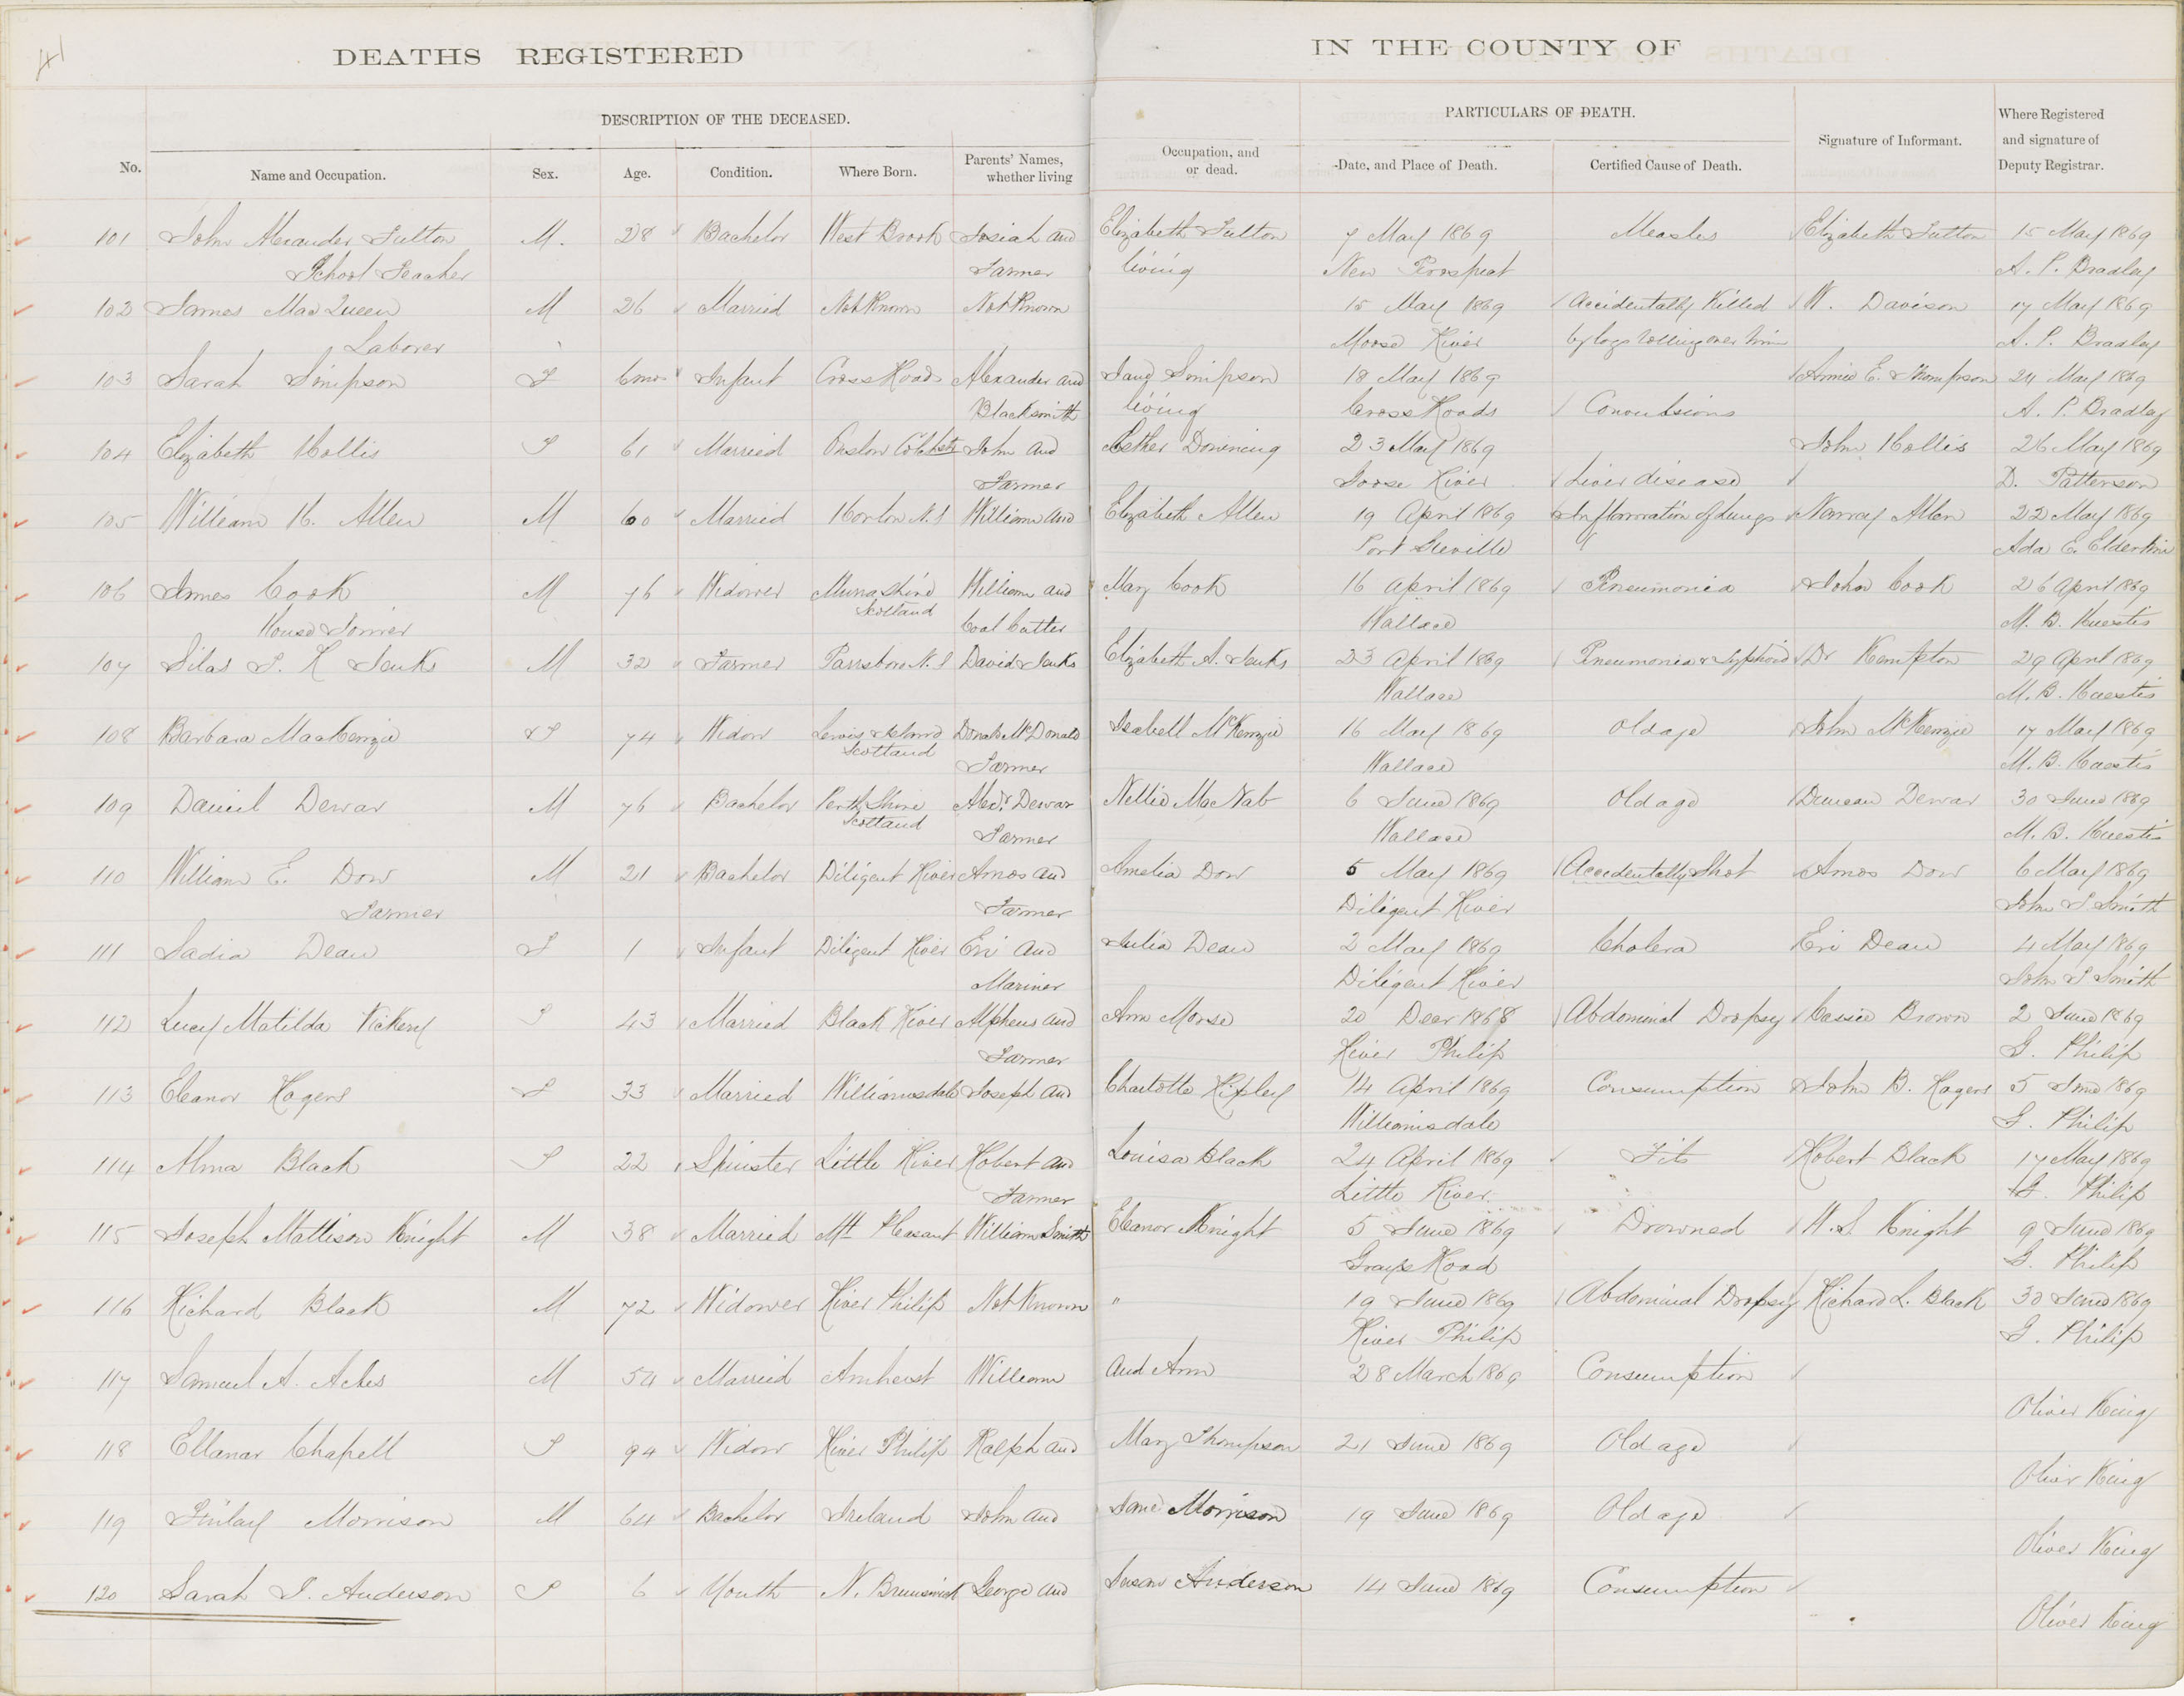 41
DEATHS REGISTERED IN THE COUNTY OF
DESCRIPTION OF THE DECEASED. PARTICULARS OF DEATH. Where Registered
Signature of Informant. and signature of
No. Name and Occupation. Sex. Age. Condition. Where Born. Parents' Names, Occupation, and Date, and Place of Death. Certified Cause of Death. Deputy Registrar.
whether living or dead.
101 John Alexander Fulton M. 28 Bachelor West Brook Josiah and Elizabeth Fulton 7 May 1869 Measles Elizabeth Fulton 15 May 1869
School Teacher Farmer living New Prospect A. P. Bradley
102 James MacQueen M 26 Married Not Known Not Known 15 May 1869 Accidentally Killed W. Davison 17 May 1869
Laborer Moose River by logs rolling over him A. P. Bradley
103 Sarah Simpson F 6 mos Infant Cross Roads Alexander and Jane Simpson 18 May 1869 Annie E. Thompson 24 May 1869
Blacksmith living Cross Roads Convulsions A. P. Bradley
104 Elizabeth Hollis F 61 Married Onslow Colchstr John and Esther Downing 23 May 1869 John Hollis 26 May 1869
Farmer Goose River Liver disease D. Patterson
105 William H. Allen M 60 Married Horton N.S William and Elizabeth Allen 19 April 1869 Inflammation of Lungs Nancy Allen 22 May 1869
Port Greville Ada E. Elderkin
106 James Cook M 76 Widower Scotland William and Mary Cook 16 April 1869 Pneumonia John Cook 26 April 1869
House Joiner Coal Cutter Wallace M. B. Huestis
107 Silas S. H Jenks M 32 Farmer Parrsboro N.S David Jenks Elizabeth A. Jenks 23 April 1869 Pneumonia & Typhoid Dr Kempton 29 April 1869
Wallace M. B. Huestis
108 Barbara MacKenzie F 74 Widow Lewis Island Donald McDonald Isabell McKenzie 16 May 1869 Old age John McKenzie 17 May 1869
Scotland Farmer Wallace M. B. Huestis
109 Daniel Dewar M 76 Bachelor Perth Shire Alexr Dewar Nellie MacNab 6 June 1869 Old age Duncan Dewar 30 June 1869
Scotland Farmer Wallace M. B. Huestis
110 William E. Dow M 21 Bachelor Diligent River Amos and Amelia Dow 5 May 1869 Accidentally Shot Amos Dow 6 May 1869
Farmer Farmer Diligent River John S Smith
111 Sadia Dean F 1 Infant Diligent River Eri and Julia Dean 2 May 1869 Cholera Eri Dean 4 May 1869
Mariner Diligent River John S Smith
112 Lucy Matilda Vickery F 43 Married Black River Alpheus and Ann Morse 20 Decr 1868 Abdominal Dropsy Cassie Brown 2 June 1869
Farmer River Philip G. Philip
113 Eleanor Rogers F 33 Married Williamsdale Joseph and Charlotte Ripley 14 April 1869 Consumption John B. Rogers 5 June 1869
Williamsdale G. Philip
114 Alma Black F 22 Spinster Little River Robert and Louisa Black 24 April 1869 Fits Robert Black 17 May 1869
Farmer Little River. G. Philip
115 Joseph Mattison Knight M 38 Married Mt Pleasant William Smith Eleanor Knight 5 June 1869 Drowned W. S. Knight 9 June 1869
Grays Road G. Philip
116 Richard Black M 72 Widower River Philip Not Known " 19 June 1869 Abdominal Dropsy Richard L. Black 30 June 1869
River Philip G. Philip
117 Samuel A. Acles M 54 Married Amherst William and Ann 28 March 1869 Consumption
Oliver King
118 Ellanar Chapell F 94 Widow River Philip Ralph and Mary Thompson 21 June 1869 Old age
Oliver King
119 Finlay Morrison M 64 Bachelor Ireland John and Jane Morrison 19 June 1869 Old age
Oliver King
120 Sarah J. Anderson F 6 Youth N. Brunswick George and Susan Anderson 14 June 1869 Consumption
Oliver King